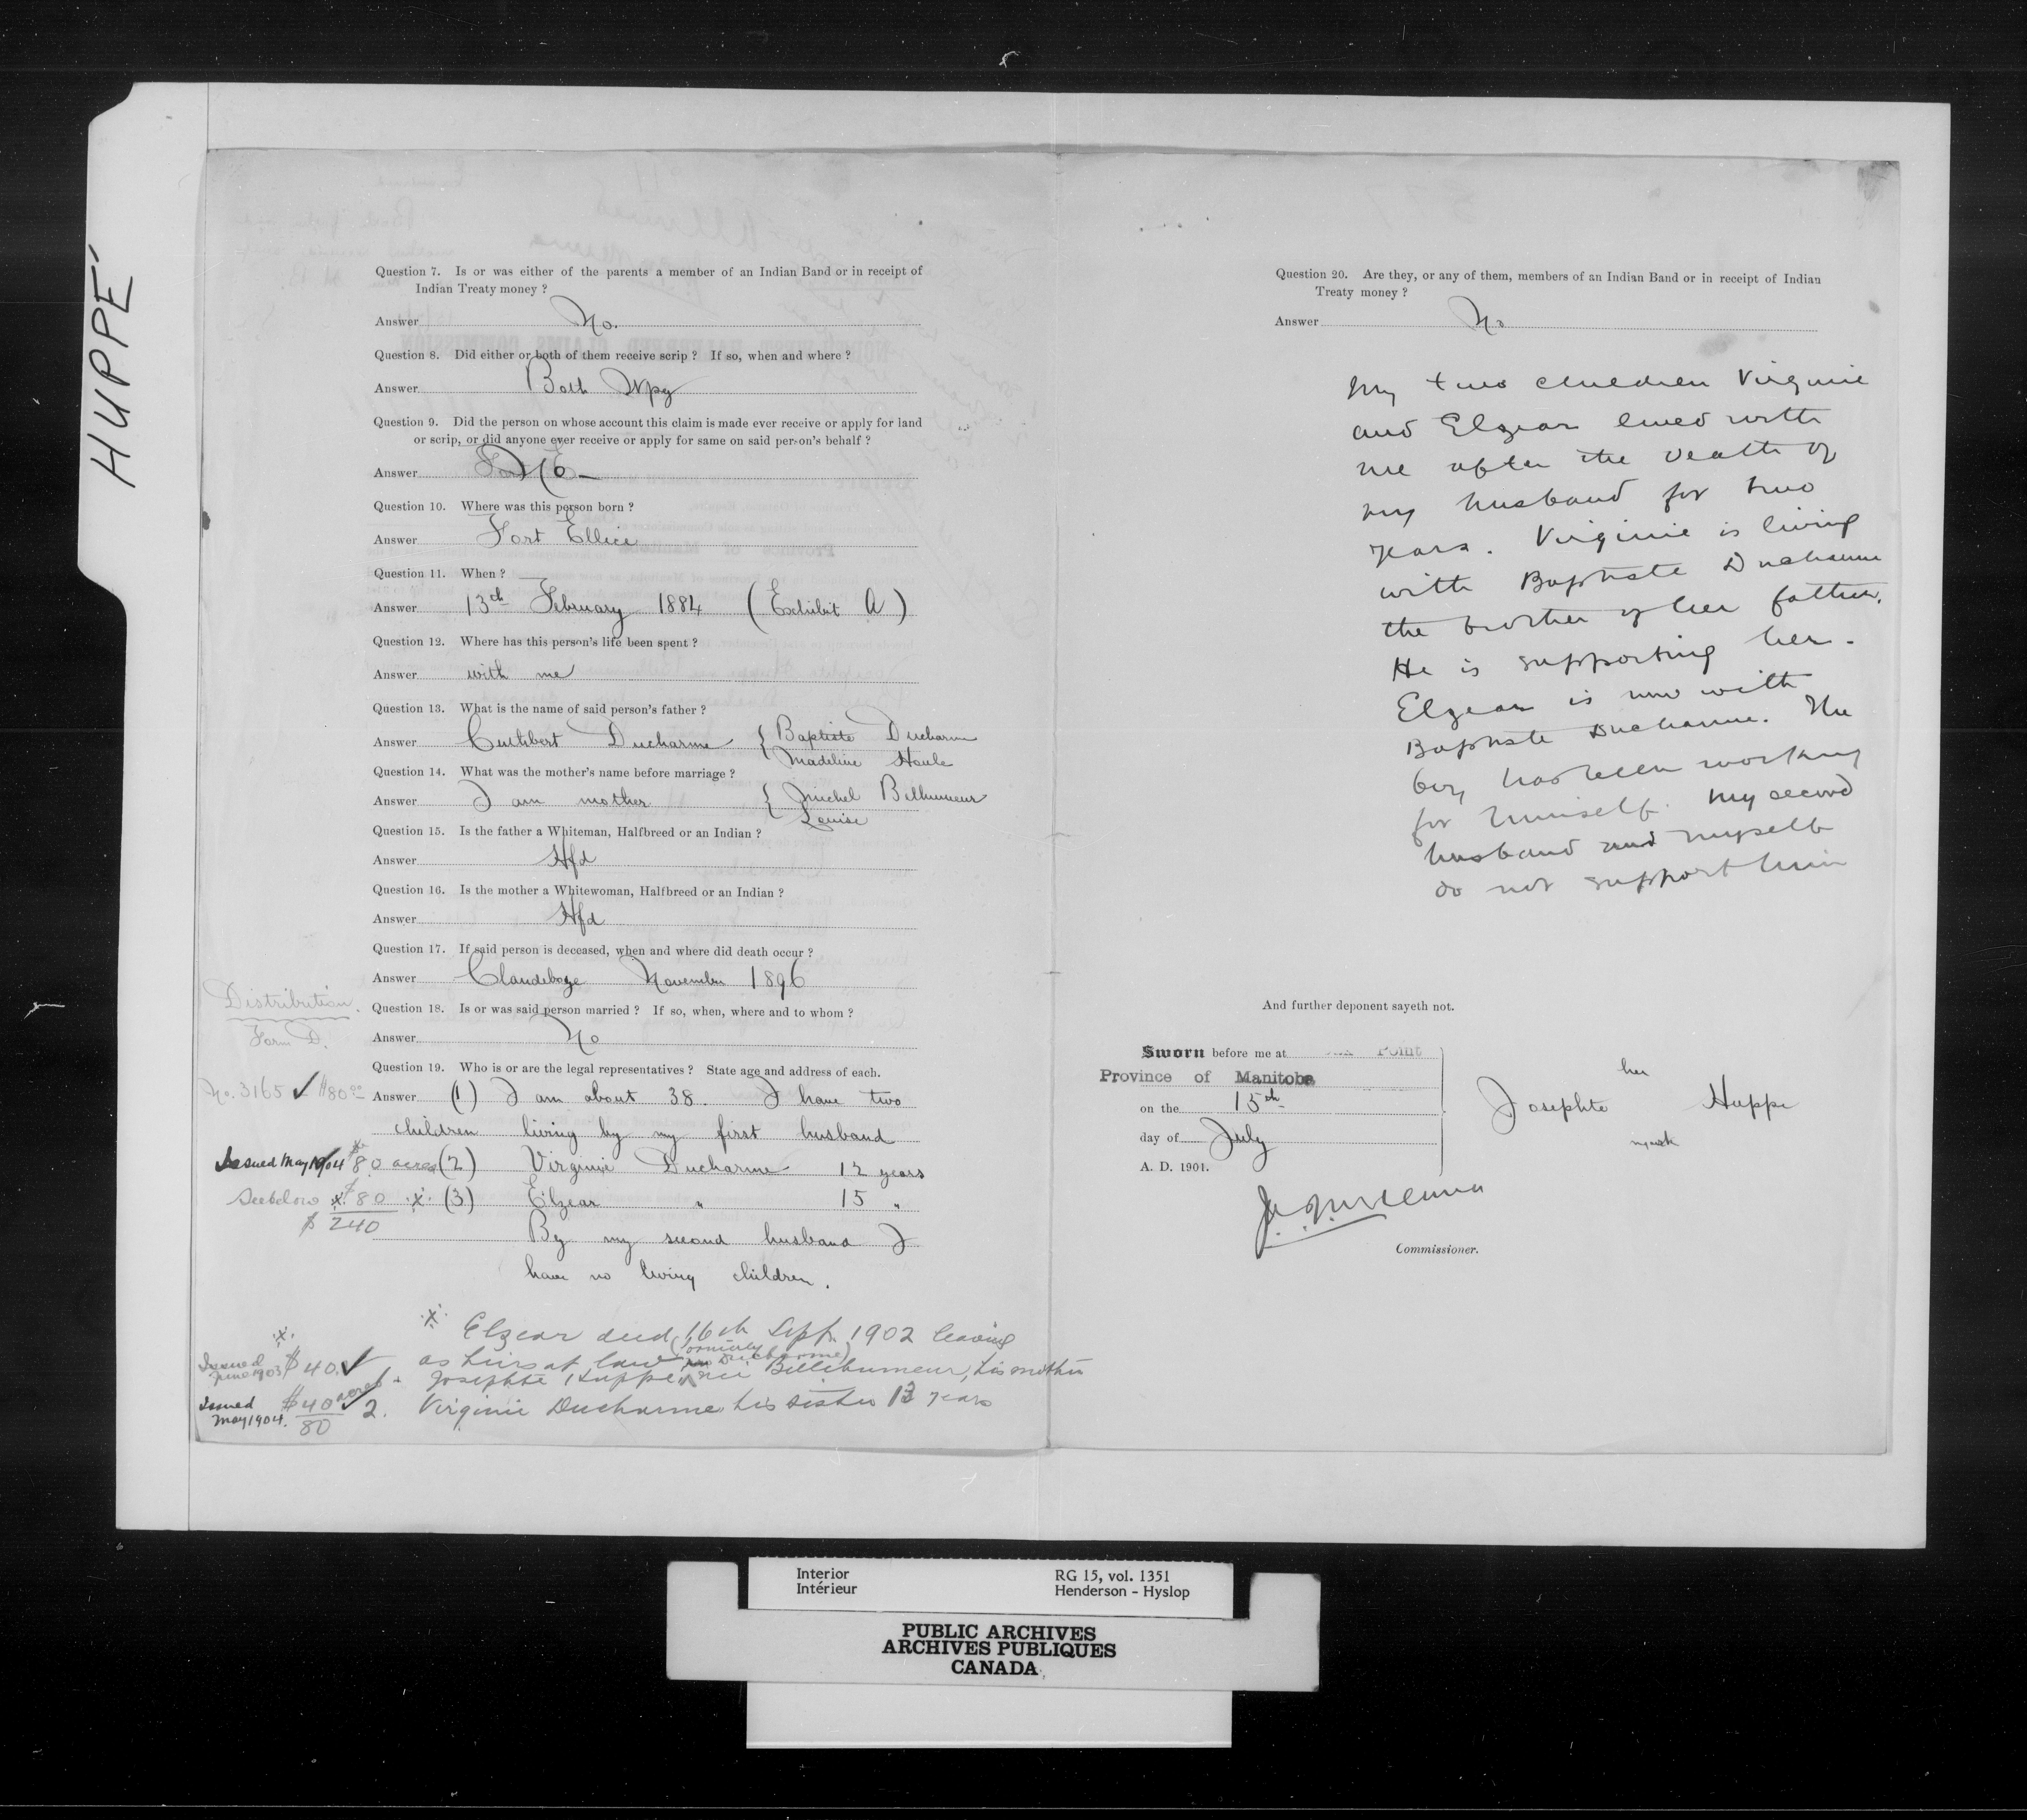 HUPPÉ
Question 7. Is or was either of the parents a member of an Indian Band or in receipt of
Indian Treaty money ?
Answer No.
Question 8. Did either or both of them receive scrip ? If so, when and where ?
Answer Both Wpg
Question 9. Did the person on whose account this claim is made ever receive or apply for land
or scrip, or did anyone ever receive or apply for same on said person's behalf ?
Answer No
Question 10. Where was this person born ?
Answer Fort Ellice
Question 11. When ?
Answer 13th February 1884 (Exhibit A)
Question 12. Where has this person's life been spent ?
Answer with me
Question 13. What is the name of said person's father ?
Answer Cuthbert Ducharme { Baptiste Ducharme
Madeline Houle
Question 14. What was the mother's name before marriage ?
Answer I am mother { Michel Bellhumeur
Louise
Question 15. Is the father a Whiteman, Halfbreed or an Indian ?
Answer Hfd
Question 16. Is the mother a Whitewoman, Halfbreed or an Indian ?
Answer Hfd
Question 17. If said person is deceased, when and where did death occur ?
Answer Clandeboye November 1896
Distribution.
Question 18. Is or was said person married ? If so, when, where and to whom ?
Form D.
Answer No
Question 19. Who is or are the legal representatives ? State age and address of each.
No. 3165 ✓ $80.00
Answer (1) I am about 38. I have two
children living by my first husband
Issued May 1904 80 acres (2) Virginie Ducharme 12 years
See below $80 (3) Elzear " 15 "
$ 240
By my second husband I
have no living children.
Elzear died 16th Sept. 1902 leaving
as heirs at law (formerly Ducharme)
Issued June 1903 $40 ✓ 1. Josephte Huppe née Bellehumeur, his mother
Issued May 1904. $40 acres ✓ 2. Virginie Ducharme his sister 13 years
80
Question 20. Are they, or any of them, members of an Indian Band or in receipt of Indian
Treaty money ?
Answer No
My two children Virginie
and Elzear lived with
me after the death of
my husband for two
years. Virginie is living
with Baptiste Ducharme
the brother of her father.
He is supporting her.
Elzear is now with
Baptiste Ducharme. The
boy has been working
for himself. My second
husband and myself
do not support him
And further deponent sayeth not.
Sworn before me at Point
Province of Manitoba
on the 15th
day of July
A. D. 1901.
her
Josephte Huppe
mark
Commissioner.
Interior
Intérieur
RG 15, vol. 1351
Henderson - Hyslop
PUBLIC ARCHIVES
ARCHIVES PUBLIQUES
CANADA